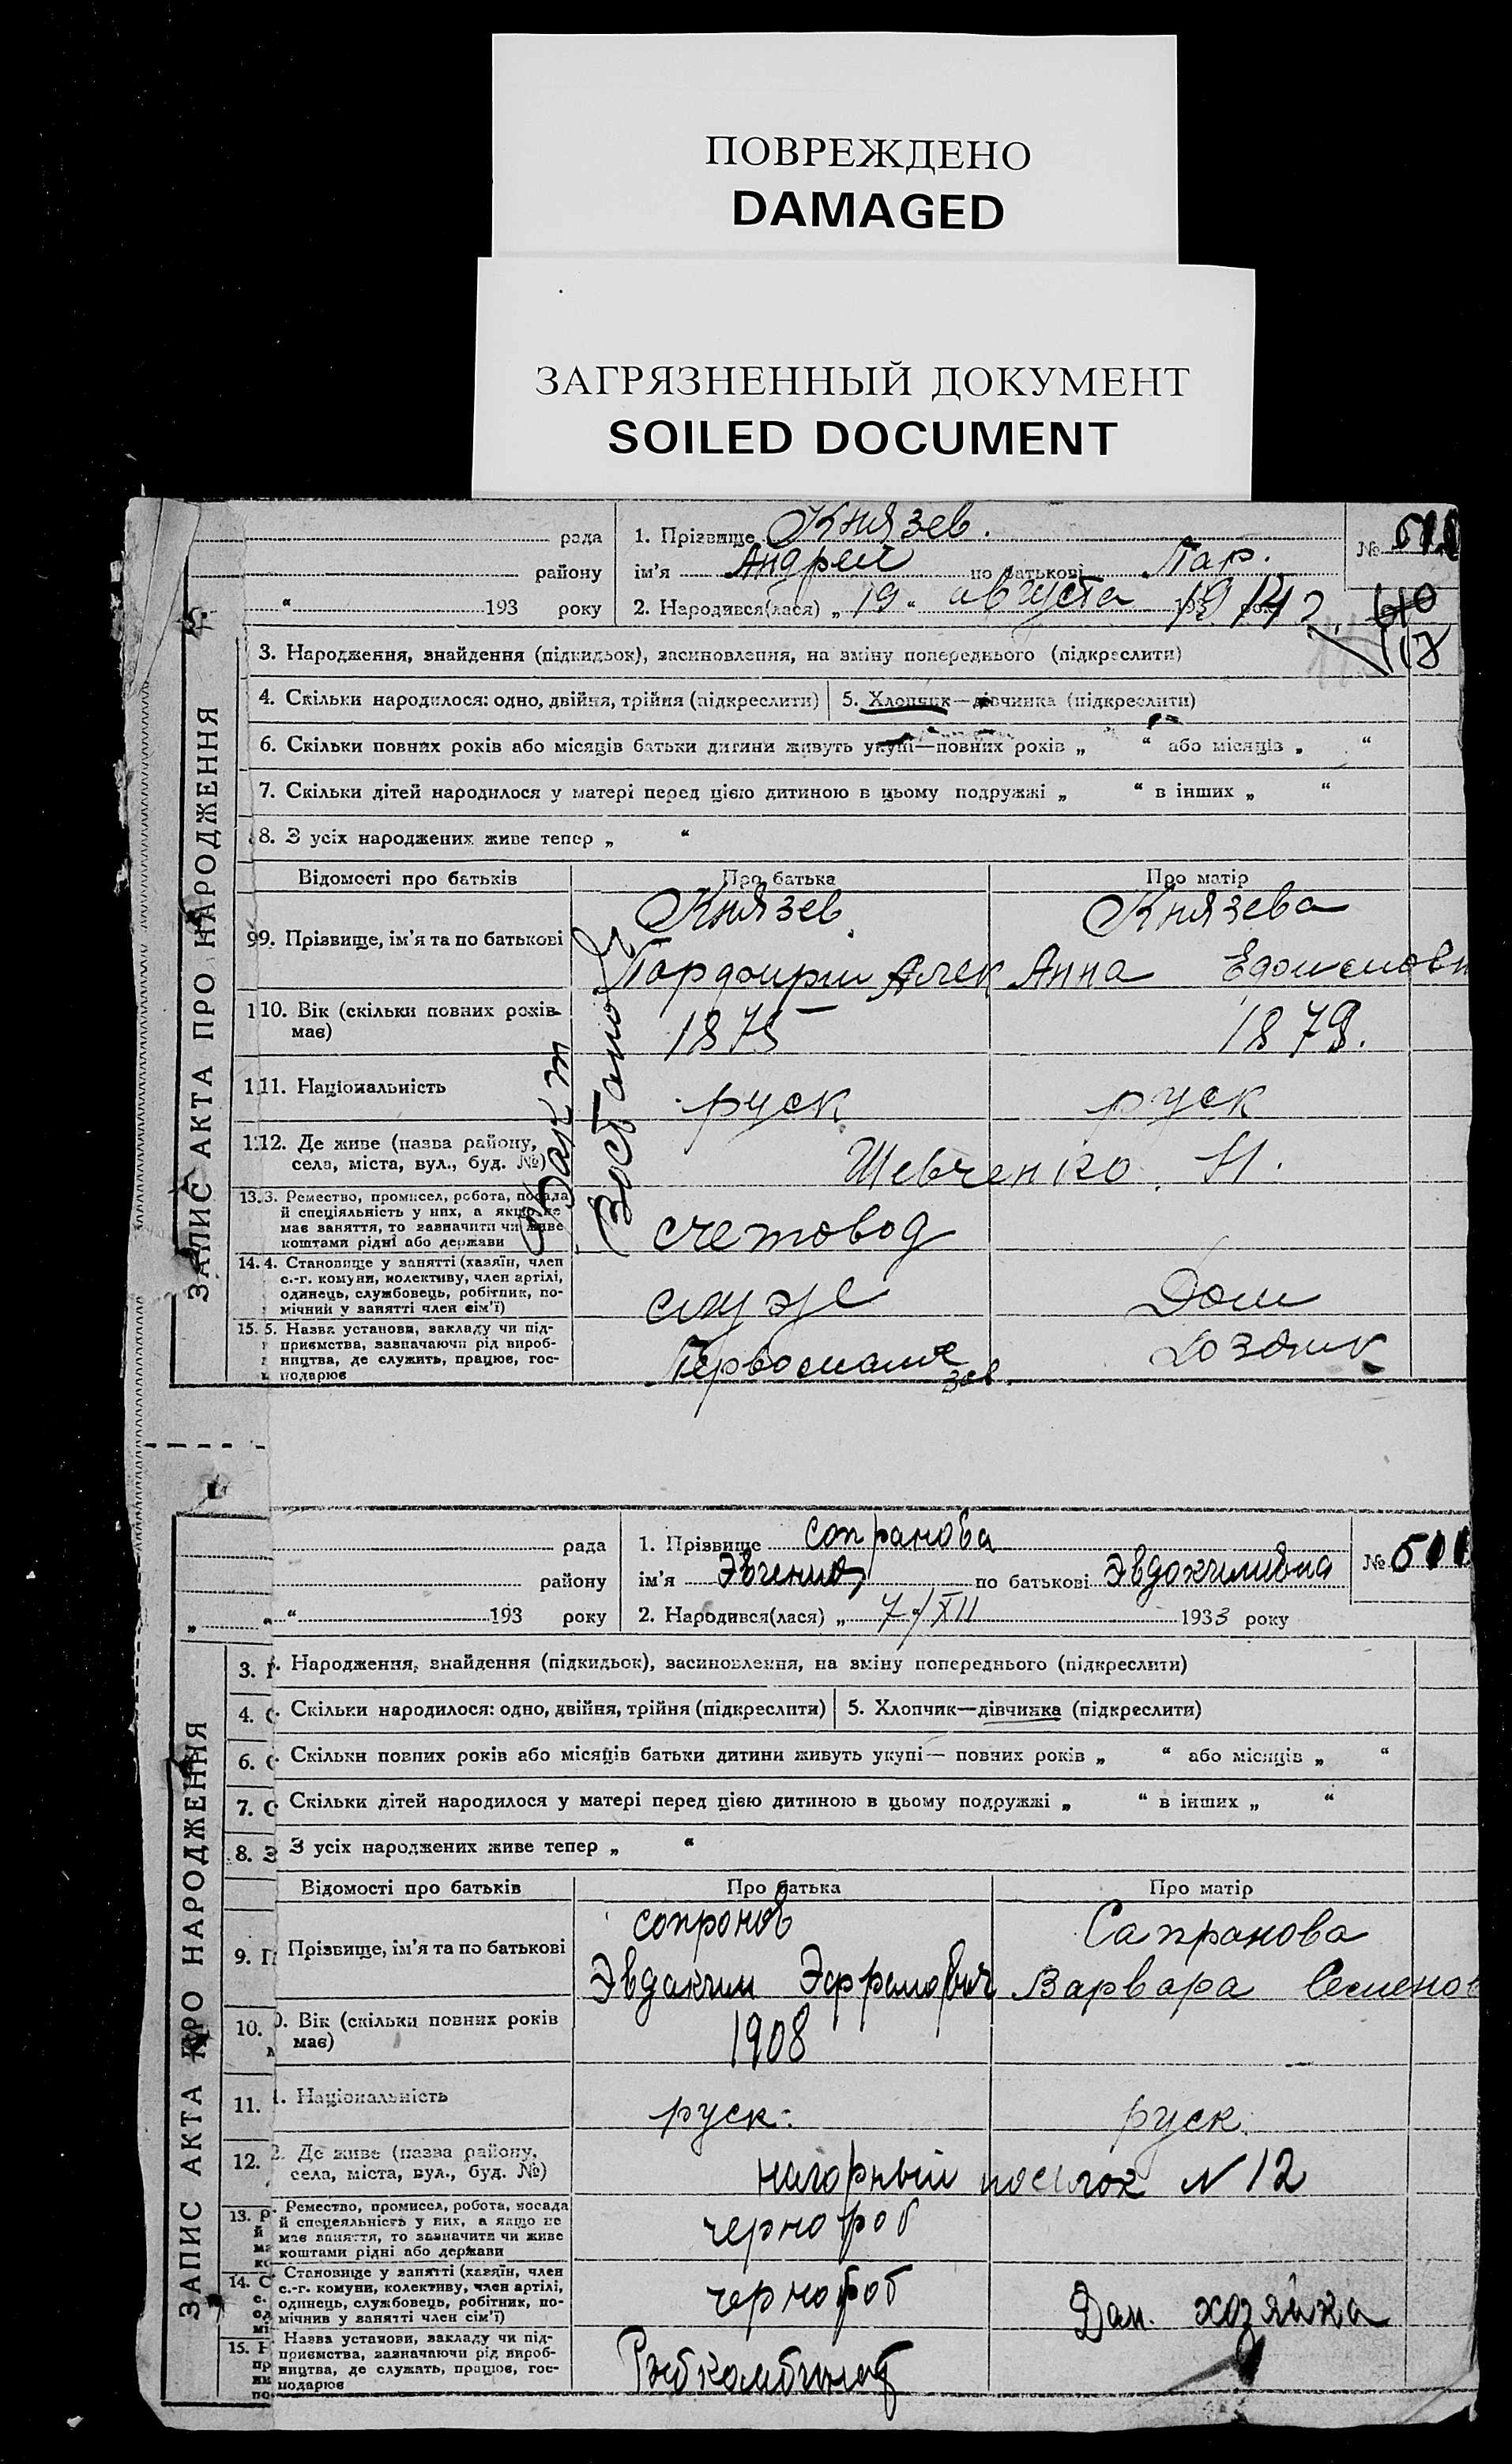 ПОВРЕЖДЕНО
DAMAGED
ЗАГРЯЗНЕННЫЙ ДОКУМЕНТ
SOILED DOCUMENT
рада
1. Прізвище Князев.
№
району
ім'я Андрей по батькові Пар.
" 193 року
2. Народився(лася) „ 19 " августа 1914 г.
40
117
ЗАПИС АКТА ПРО НАРОДЖЕННЯ
3. Народження, знайдення (підкидьок), засиновлення, на зміну попереднього (підкреслити)
4. Скільки народилося: одно, двійня, трійня (підкреслити) 5. Хлопчик—дівчинка (підкреслити)
6. Скільки повних років або місяців батьки дитини живуть укупі—повних років „ " або місяців „ "
7. Скільки дітей народилося у матері перед цією дитиною в цьому подружжі „ " в інших „ "
8. З усіх народжених живе тепер „ "
Відомості про батьків Про батька Про матір
9. Прізвище, ім'я та по батькові
Князев Князева
Парфирий Алек Анна
10. Вік (скільки повних років має)
1875 1879.
11. Національність
руск руск
12. Де живе (назва району,
села, міста, вул., буд. №)
Шевченко
13. Ремество, промисел, робота, посада
й спеціяльність у них, а якщо не
має заняття, то зазначити чи живе
коштами рідні або держави
счетовод
14. Становище у занятті (хазяїн, член
с.-г. комуни, колективу, член артілі,
одинець, службовець, робітник, по-
мічний у занятті член сім'ї)
служ Дом
15. Назва установи, закладу чи під-
приємства, зазначаючи рід вироб-
ництва, де служить, працює, гос-
подарює
зав.
рада
1. Прізвище Сопранова
№ 511
району
ім'я Эвгения по батькові Эвдокимивна
„ " 193 року
2. Народився(лася) „ 7 " /XII 1933 року
ЗАПИС АКТА ПРО НАРОДЖЕННЯ
3. Народження, знайдення (підкидьок), засиновлення, на зміну попереднього (підкреслити)
4. Скільки народилося: одно, двійня, трійня (підкреслити) 5. Хлопчик—дівчинка (підкреслити)
6. Скільки повних років або місяців батьки дитини живуть укупі— повних років „ " або місяців „ "
7. Скільки дітей народилося у матері перед цією дитиною в цьому подружжі „ " в інших „ "
8. З усіх народжених живе тепер „ "
Відомості про батьків Про батька Про матір
9. Прізвище, ім'я та по батькові
сопронов Сапранова
Эвдаким Варвара Семенов
10. Вік (скільки повних років
має)
1908
11. Національність
руск: руск.
12. Де живе (назва району,
села, міста, вул., буд. №)
нагорный посилок N 12
13. Ремество, промисел, робота, посада
й спеціяльність у них, а якщо не
має заняття, то зазначити чи живе
коштами рідні або держави
чернороб
14. Становище у занятті (хазяїн, член
с.-г. комуни, колективу, член артілі,
одинець, службовець, робітник, по-
мічнив у занятті член сім'ї)
чернороб Дом. хозяйка
15. Назва установи, закладу чи під-
приємства, зазначаючи рід вироб-
ництва, де служать, працює, гос-
подарює
Рыбкомбинат